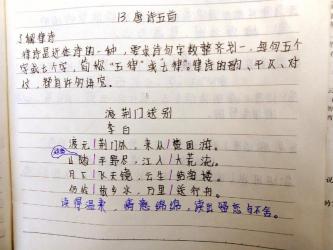 13. 唐诗五首
了解律诗
律诗是近体诗的一种，要求诗句字数整齐划一，每句五个
字或七个字，简称"五律"或七律"。律诗的韵、平仄、对
仗，都有许多讲究。
渡荆门送别
李白
渡远/荆门外，来从/楚国游。
山随/平野尽，江入/大荒流。
月下/飞天镜，云生/结海楼。
仍怜/故乡水，万里/送行舟。
读得温柔，情意绵绵，读出留恋与不舍。